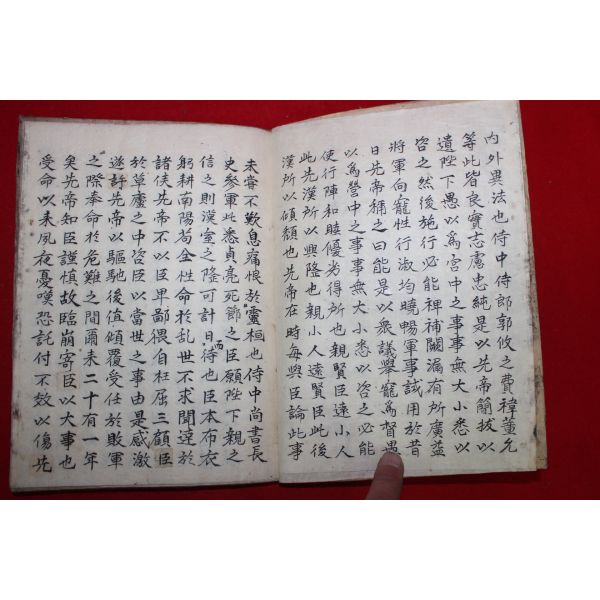 內外異法也侍中侍郎郭攸之費禕董允
等此皆良實志慮忠純是以先帝簡拔以
遺陛下愚以爲宮中之事事無大小悉以
咨之然後施行必能裨補闕漏有所廣益
將軍向寵性行淑均曉暢軍事試用於昔
日先帝稱之曰能是以衆議擧寵爲督愚
以爲營中之事事無大小悉以咨之必能
使行陣和睦優劣得所也親賢臣遠小人
此先漢所以興隆也親小人遠賢臣此後
漢所以傾頹也先帝在時每與臣論此事
未甞不歎息痛恨於靈桓也侍中尙書長
史參軍此悉貞亮死節之臣願陛下親之
信之則漢室之隆可計日而待也臣本布衣
躬耕南陽苟全性命於乱世不求聞逹於
諸侯先帝不以臣卑鄙猥自枉屈三顧臣
於草廬之中咨臣以當世之事由是感激
遂許先帝以驅馳後値傾覆受任於敗軍
之際奉命於危難之間爾來二十有一年
矣先帝知臣謹愼故臨崩寄臣以大事也
受命以來夙夜憂嘆恐託付不效以傷先